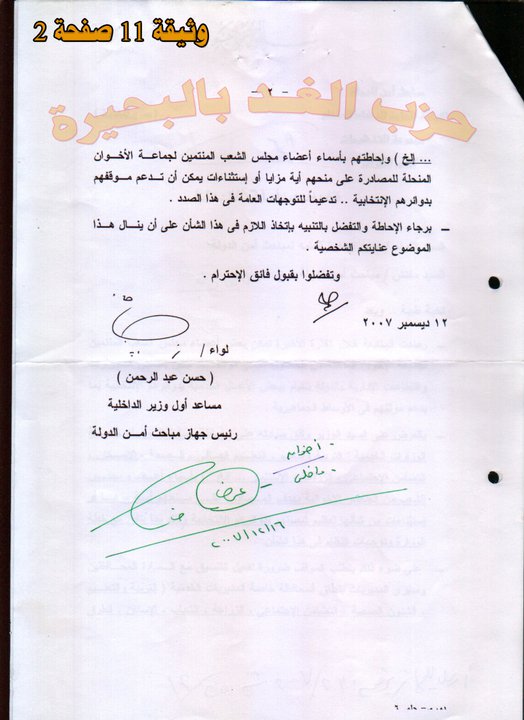 وثيقة 11 صفحة 2
- ٢ -
حزب الغد بالبحيرة
... إلخ ) وإحاطتهم بأسماء أعضاء مجلس الشعب المنتمين لجماعة الأخوان
المنحلة للمصادرة على منحهم أية مزايا أو إستثناءات يمكن أن تدعم موقفهم
بدوائرهم الإنتخابية .. تدعيماً للتوجهات العامة فى هذا الصدد .
- برجاء الإحاطة والتفضل بالتنبيه بإتخاذ اللازم فى هذا الشأن على أن ينال هذا
الموضوع عنايتكم الشخصية .
وتفضلوا بقبول فائق الإحترام .
١٢ ديسمبر ٢٠٠٧
لواء /
( حسن عبد الرحمن )
مساعد أول وزير الداخلية
رئيس جهاز مباحث أمن الدولة
- اخوان
- داخلى
عرض
٢٠٠٧/١٢/١٦